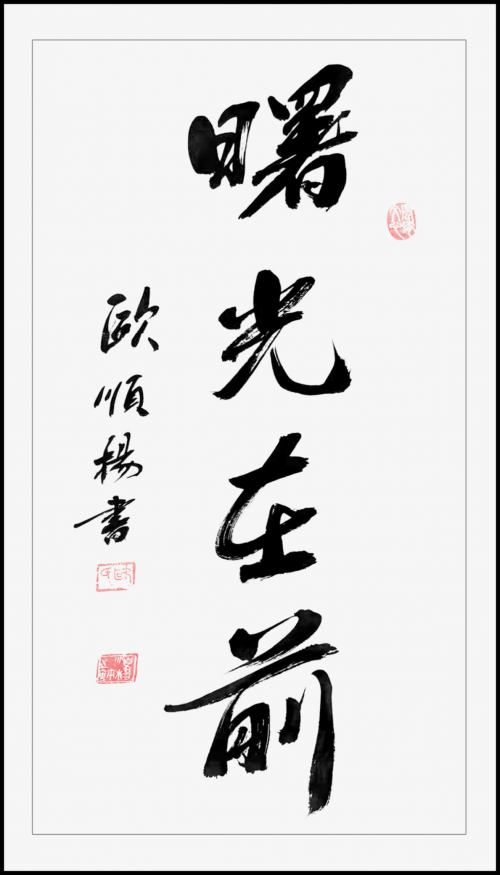 曙光在前
歐順楊書